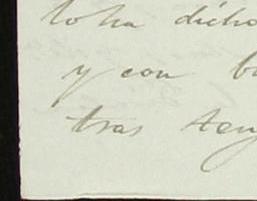 lo ha dicho
y con b
tras ten